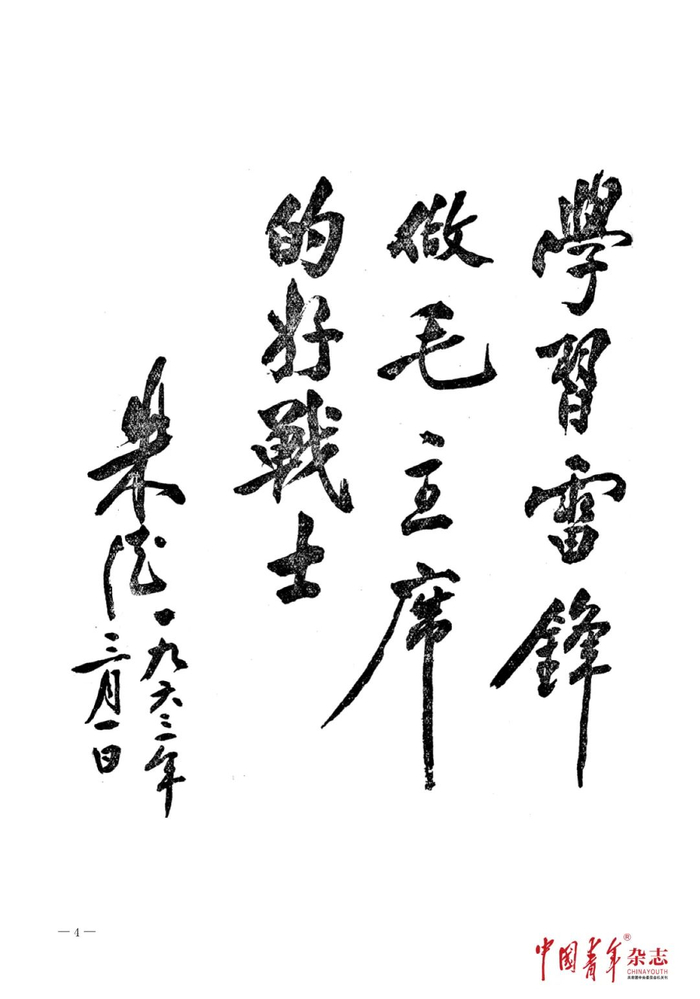 學習雷鋒
做毛主席
的好戰士
朱德
一九六三年
三月一日
— 4 —
中国青年®杂志
CHINAYOUTH